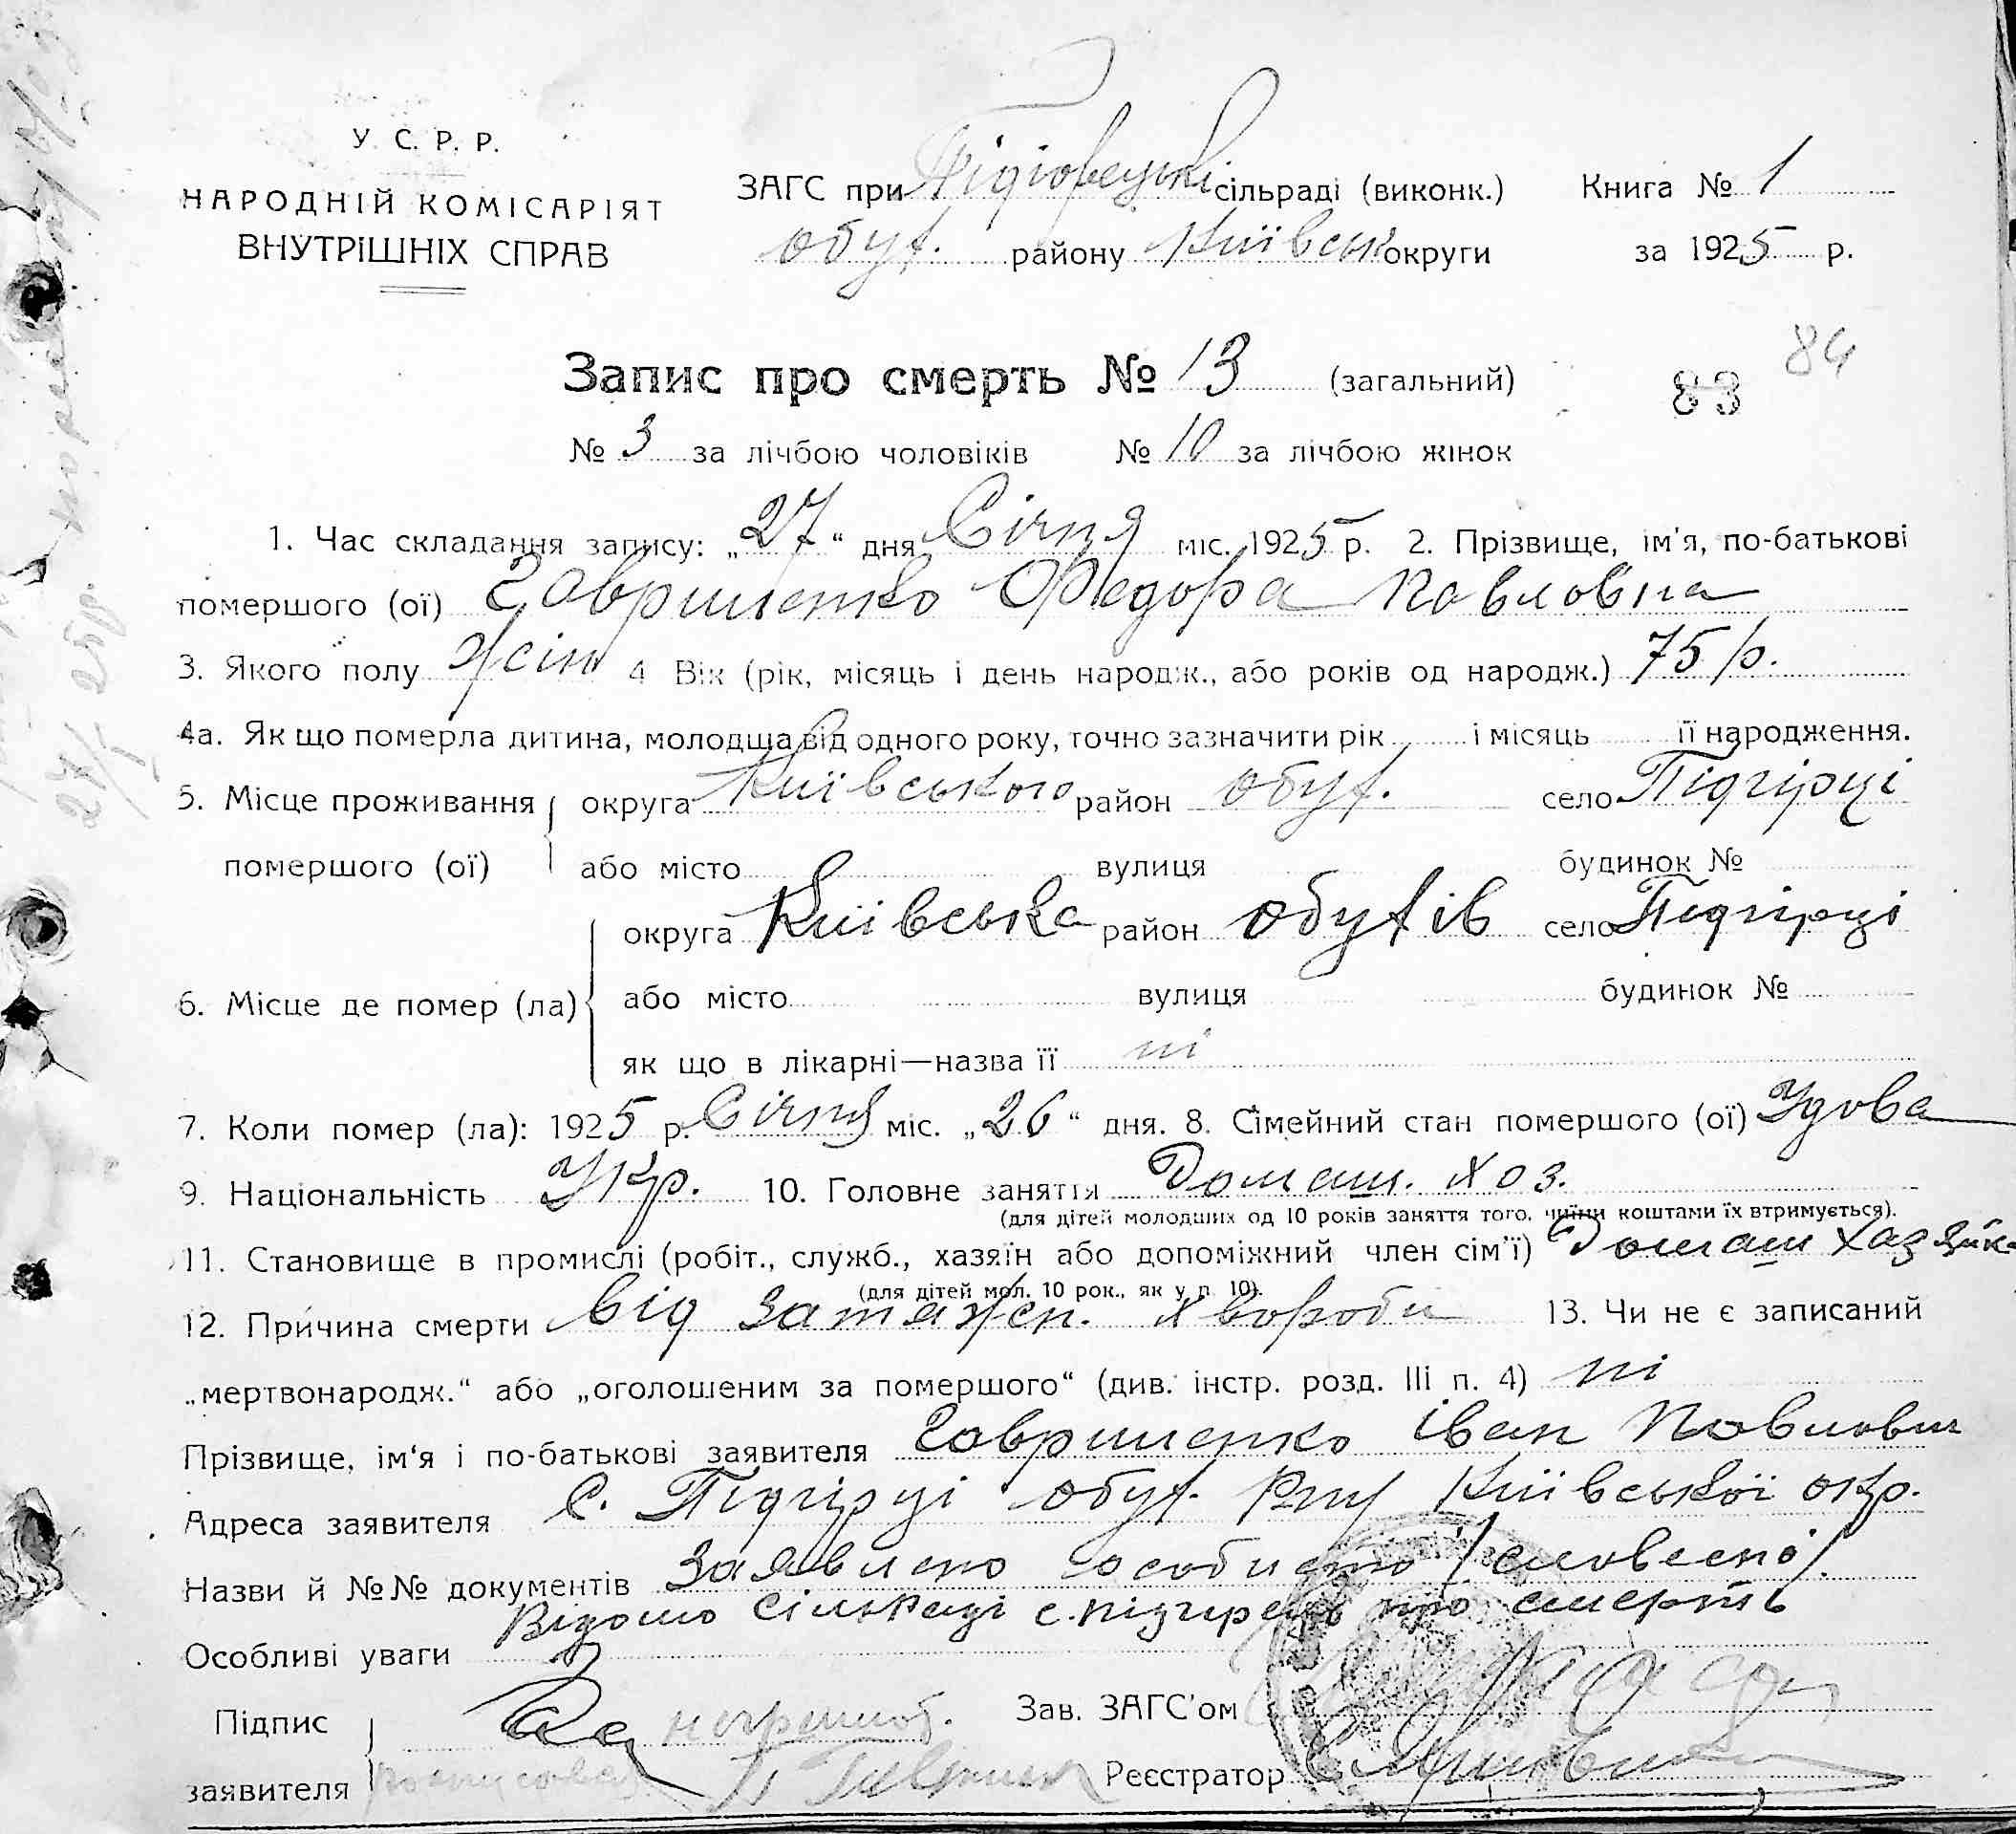 У. С. Р. Р.
НАРОДНІЙ КОМІСАРІЯТ
ВНУТРІШНІХ СПРАВ
ЗАГС при сільраді (виконк.) Книга № 1
обух. району Київськ округи за 1925 р.
Запис про смерть № 13 (загальний)
83 84
№ 3 за лічбою чоловіків № 10 за лічбою жінок
1. Час складання запису: „27“ дня Січня міс. 1925 р. 2. Прізвище, ім'я, по-батькові
помершого (ої) Гавриленко Федора Павловна
3. Якого полу жін 4 Вік (рік, місяць і день народж., або років од народж.) 75 р.
4а. Як що померла дитина, молодща від одного року, точно зазначити рік і місяць її народження.
5. Місце проживання округа Київського район обух. село Підгірці
помершого (ої) або місто вулиця будинок №
округа Київська район обухів село Підгірці
6. Місце де помер (ла) або місто вулиця будинок №
як що в лікарні—назва її ні
7. Коли помер (ла): 1925 р. Січня міс. „26“ дня. 8. Сімейний стан помершого (ої) Удова
9. Національність Укр. 10. Головне заняття Домаш. хоз.
(для дітей молодших од 10 років заняття того, чиїми коштами їх втримується).
11. Становище в промислі (робіт., служб., хазяїн або допоміжний член сім'ї) Домаш хазяйк
(для дітей мол. 10 рок., як у п. 10).
12. Причина смерти від затяжен. хвороби 13. Чи не є записаний
„мертвонародж.“ або „оголошеним за помершого“ (див. інстр. розд. III п. 4) ні
Прізвище, ім'я і по-батькові заявителя Гавриленко Іван Павлович
Адреса заявителя С. Підгірці обух. р-ну Київської окр.
Назви й №№ документів Заявлено особисто /словесно/.
Відомо сільраді с. Підгірець про смерть
Особливі уваги
Підпис За неграмот. Зав. ЗАГС'ом
заявителя росписався Реєстратор